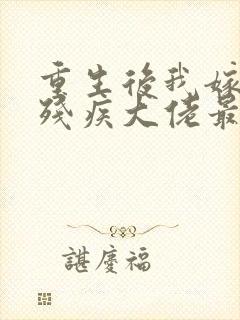 重生後我嫁
殘疾大佬最
諶慶福